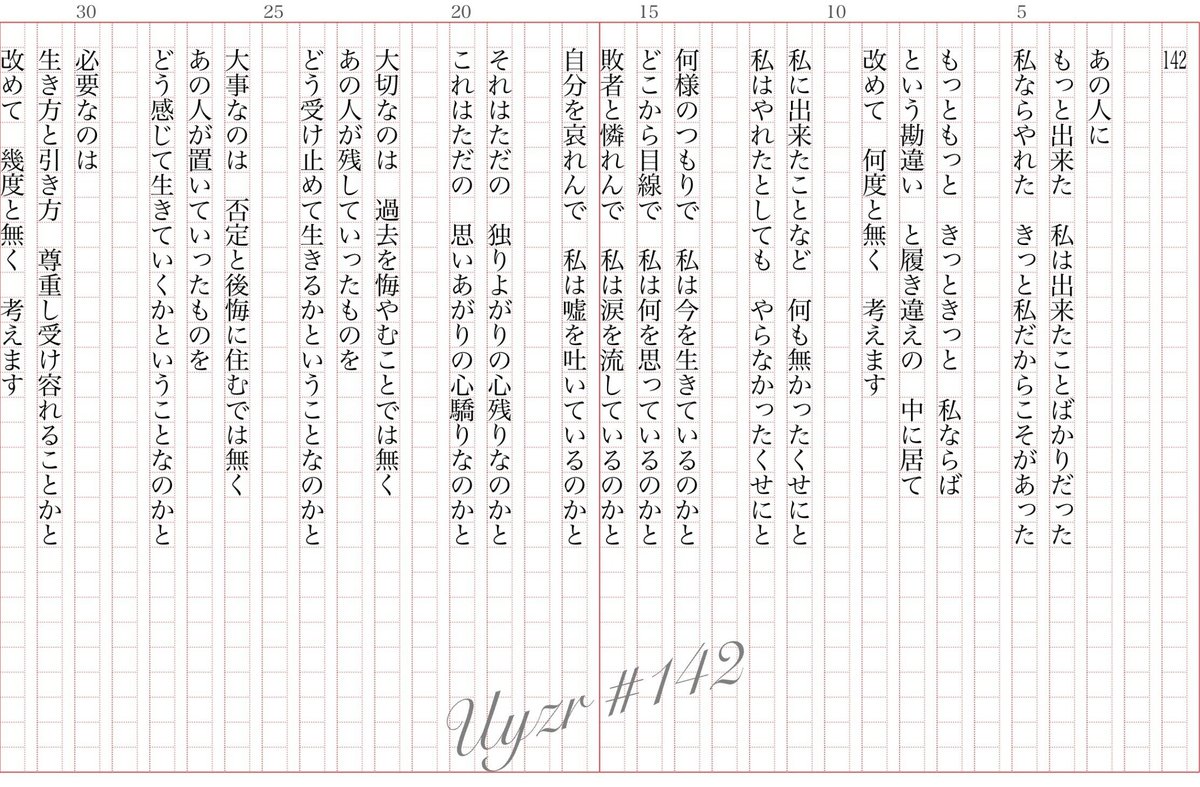 30 25 20 15 10 5
142
あの人に
もっと出来た　私は出来たことばかりだった
私ならやれた　きっと私だからこそがあった
もっともっと　きっときっと　私ならば
という勘違い　と履き違えの　中に居て
改めて　何度と無く　考えます
私に出来たことなど　何も無かったくせにと
私はやれたとしても　やらなかったくせにと
何様のつもりで　私は今を生きているのかと
どこから目線で　私は何を思っているのかと
敗者と憐れんで　私は涙を流しているのかと
自分を哀れんで　私は嘘を吐いているのかと
それはただの　独りよがりの心残りなのかと
これはただの　思いあがりの心驕りなのかと
大切なのは　過去を悔やむことでは無く
あの人が残していったものを
どう受け止めて生きるかということなのかと
大事なのは　否定と後悔に住むでは無く
あの人が置いていったものを
どう感じて生きていくかということなのかと
必要なのは
生き方と引き方　尊重し受け容れることかと
改めて　幾度と無く　考えます
Uyzr #142